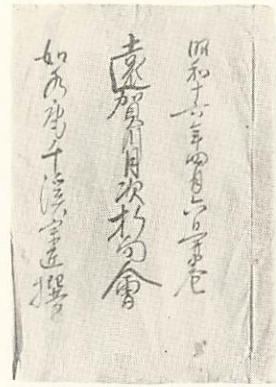 昭和十六年四月六日巻
遠賀川月次折句會
如水庵千溪宗匠撰